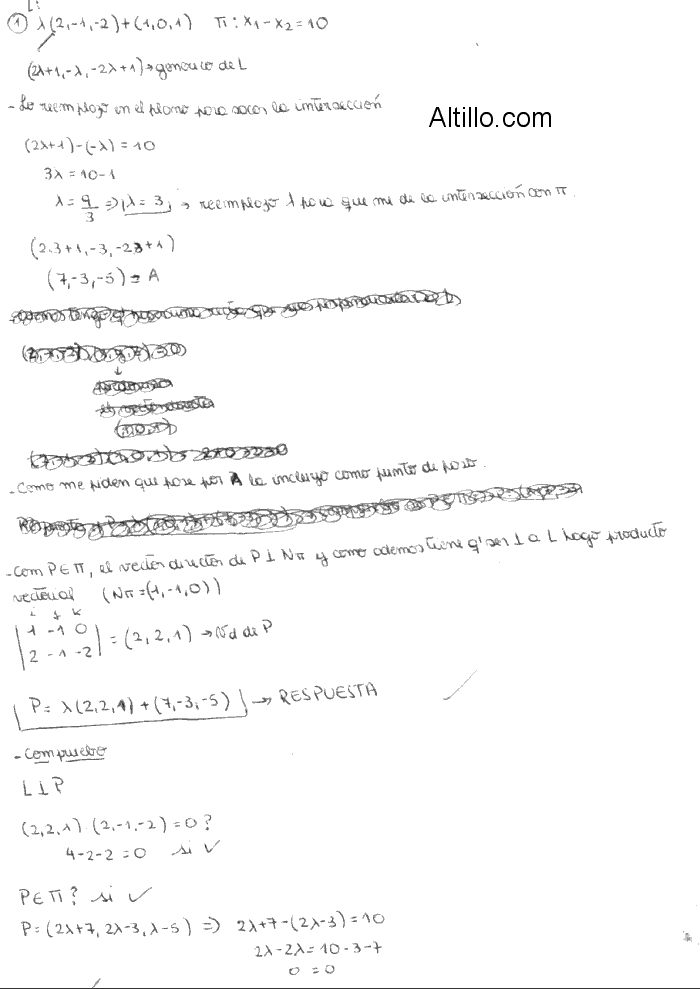 L:
① λ(2,-1,-2)+(1,0,1) π: x₁-x₂=10
(2λ+1,-λ,-2λ+1)→generico de L
- Lo reemplazo en el plano para sacar la intersección
Altillo.com
(2λ+1)-(-λ)=10
3λ=10-1
λ=9/3 ⇒ λ=3 → reemplazo λ para que me de la intersección con π.
(2.3+1,-3,-2.3+1)
(7,-3,-5)=A
- Como me piden que pase por A la incluyo como punto de paso.
- Com P∈π, el vector director de P⊥Nπ y como ademas tiene q' ser ⊥ a L hago producto
vectorial (Nπ=(1,-1,0))
i j k
|1 -1 0|
|2 -1 -2| = (2,2,1)→Vd de P
P=λ(2,2,1)+(7,-3,-5) → RESPUESTA
- Compruebo
L⊥P
(2,2,1).(2,-1,-2)=0?
4-2-2=0 si ✓
P∈π? si ✓
P=(2λ+7,2λ-3,λ-5) ⇒ 2λ+7-(2λ-3)=10
2λ-2λ=10-3-7
0=0